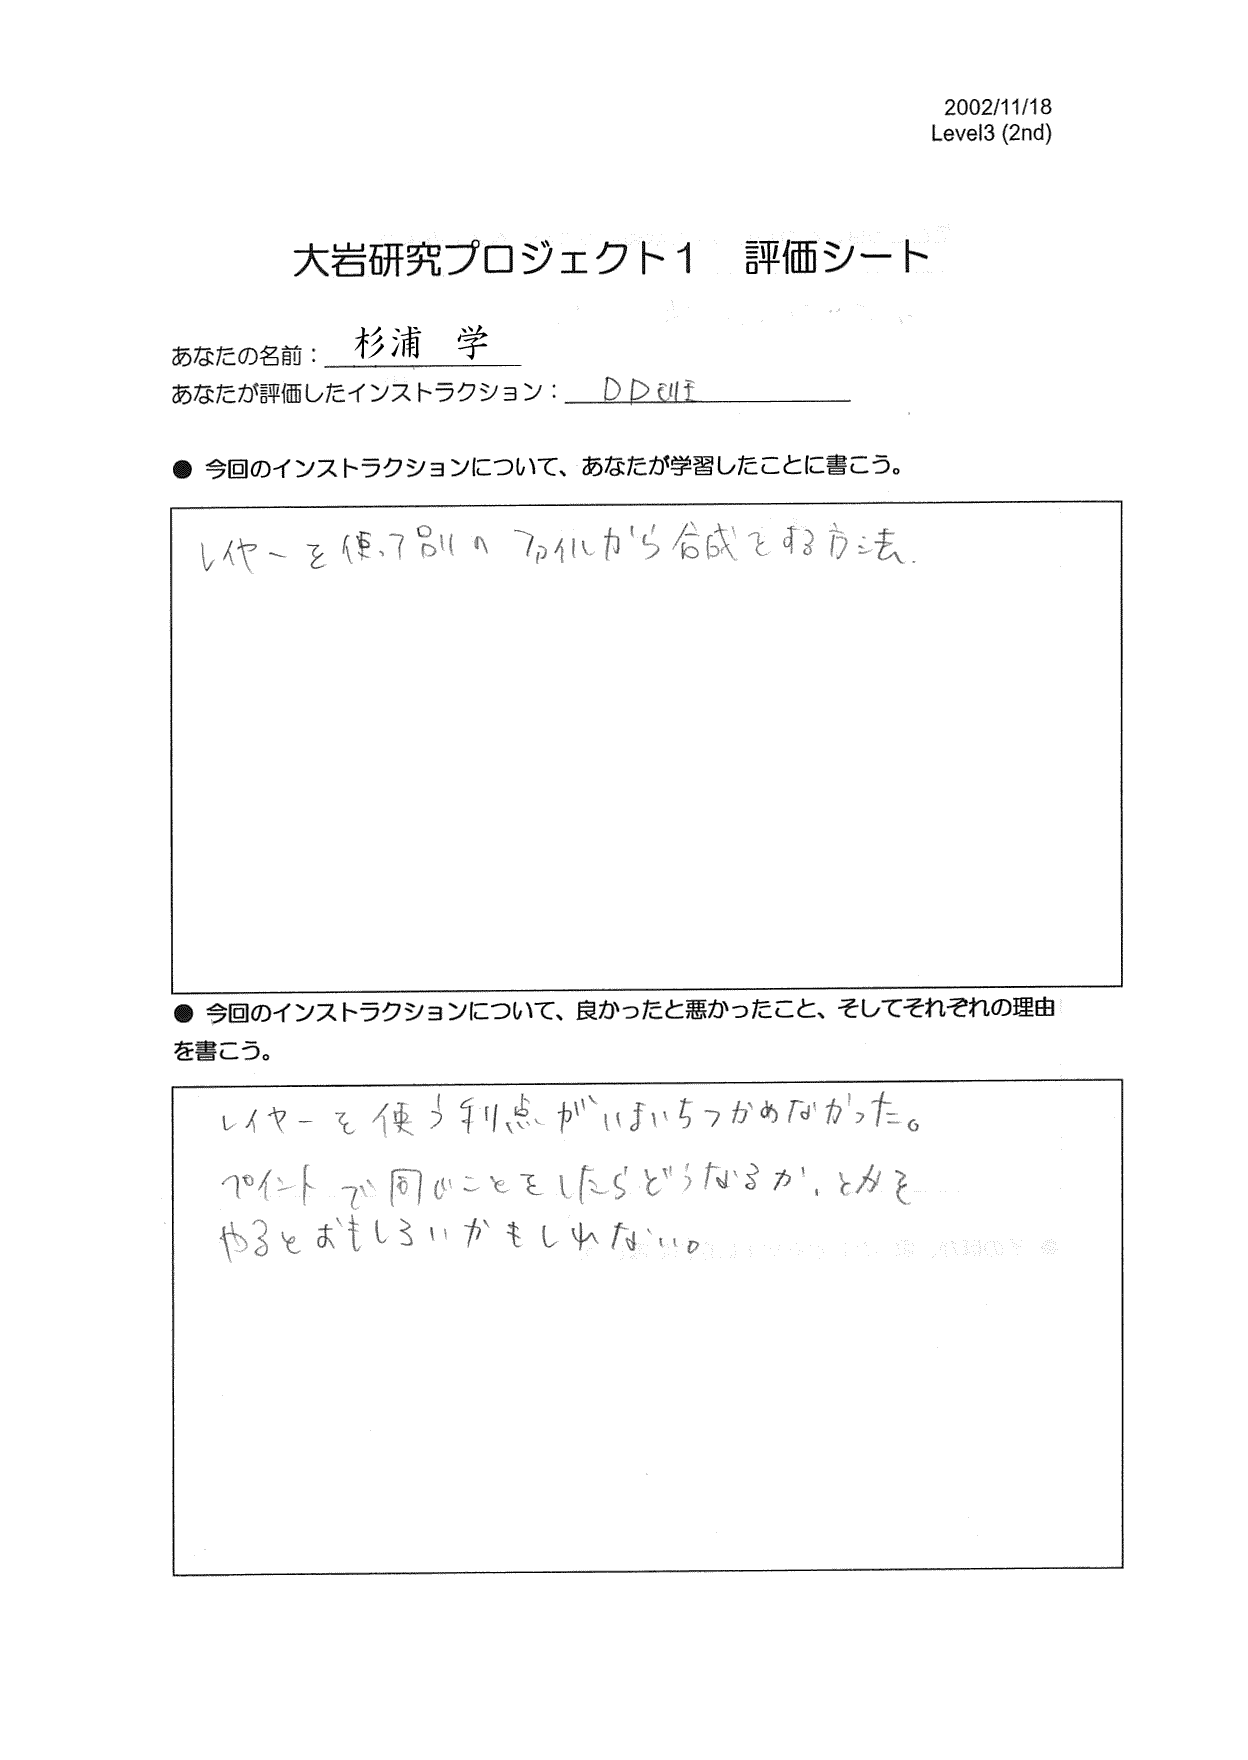 2002/11/18
Level3 (2nd)
大岩研究プロジェクト１　評価シート
あなたの名前：杉浦　学
あなたが評価したインストラクション：DD
● 今回のインストラクションについて、あなたが学習したことに書こう。
レイヤーを使って別のファイルから合成をする方法.
● 今回のインストラクションについて、良かったと悪かったこと、そしてそれぞれの理由
を書こう。
レイヤーを使う利点がいまいちつかめなかった。
ペイントで同じことをしたらどうなるか、とかを
やるとおもしろいかもしれない。